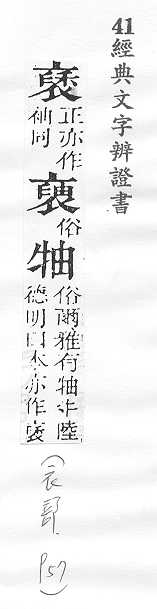 41經典文字辨證書
褎正亦作
袖同
俗
牰俗爾雅有牰牛陸
德明曰本亦作褎
(衣部 P57)